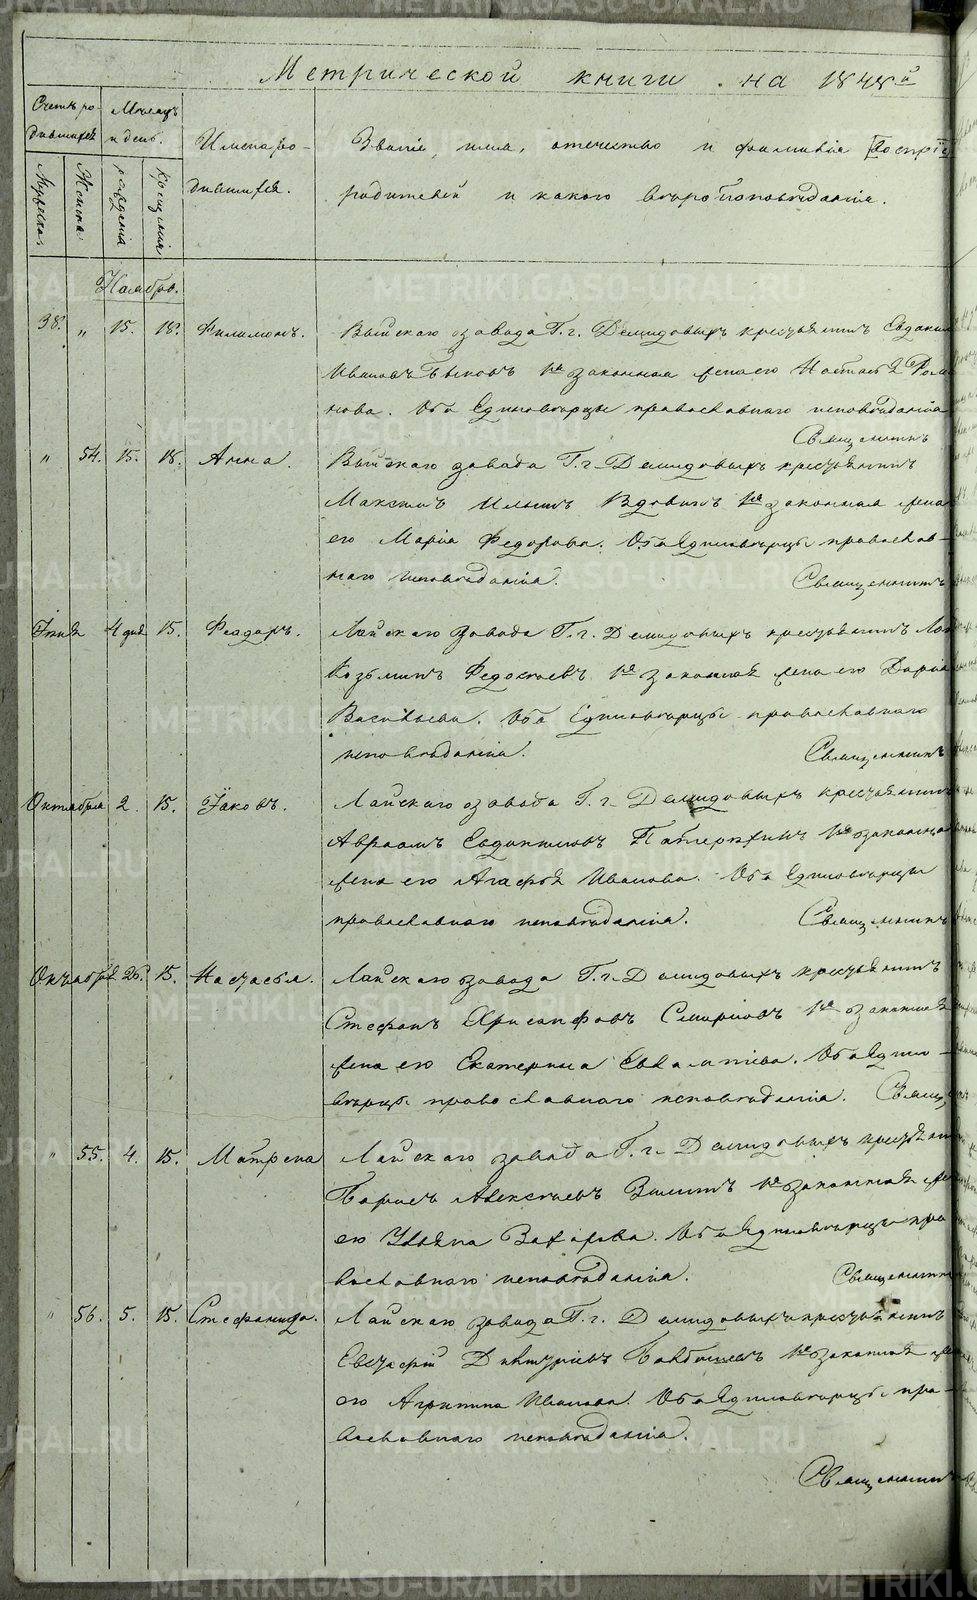 Метрической книги на 1848й
Счетъ ро-
дившихся
Мѣсяцъ
и день.
Имена ро-
дившихся.
Званіе, имя, отечество и фамилія
родителей и какого вѣроисповѣданія.
Мужеска
Женска
рожденія
крещенія
Ноября.
38. „ 15. 18. Филимонъ. Выйскаго завода Г. г. Демидовыхъ крестьянинъ Евдоким
Ивановъ Быковъ законная жена его Настасья Рома
нова. Оба Единовѣрцы православнаго исповѣданія
Священникъ
„ 54. 15. 18. Анна. Выйскаго завода Г. г. Демидовыхъ крестьянинъ
Максимъ Ильинъ Вдовинъ законная жена
его Марія Федорова. Оба Единовѣрцы православ-
наго исповѣданія. Священникъ
Іюня 4 дня 15. Феодоръ. Лайскаго завода Г. г. Демидовыхъ крестьянинъ
Козьминъ Федосѣевъ законная жена его Дарія
Васильева. Оба Единовѣрцы православнаго
исповѣданія. Священникъ
Октября 2. 15. Іаковъ. Лайскаго завода Г. г. Демидовыхъ крестьянинъ
Авраамъ Евдокимовъ законная
жена его Агафья Иванова. Оба Единовѣрцы
православнаго исповѣданія. Священникъ
Октября 26. 15. Настасья. Лайскаго завода Г. г. Демидовыхъ крестьянинъ
Стефанъ Хрисанфовъ Смирновъ законная
жена его Екатерина Евлампіева. Оба Едино-
вѣрцы православнаго исповѣданія. Священ
„ 55. 4. 15. Матрена Лайскаго завода Г. г. Демидовыхъ крестьянин
Борисъ Алексѣевъ Зиминъ законная же
его Ульяна Захарова. Оба Единовѣрцы пра
вославнаго исповѣданія. Священник
„ 56. 5. 15. Стефанида. Лайскаго завода Г. г. Демидовыхъ крестьянинъ
Евстафій законная
его Агрипина Иванова. Оба Единовѣрцы пра-
вославнаго исповѣданія.
Священник
METRIKI.GASO-URAL.RU